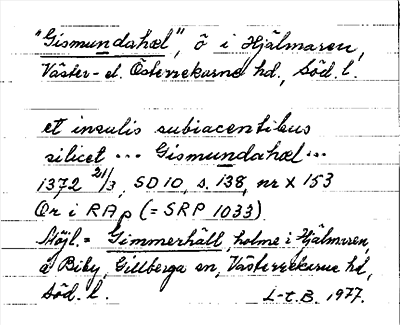 "Gismundahæl", ö i Hjälmaren,
Väster- el. Österrekarne hd., Söd. l.
et insulis subiacentibus
silicet ... Gismundahæl ...
1372 21/3, SD 10, s. 138, nr X 153
Or i RAp (= SRP 1033).
Möjl. = Gimmerhäll, holme i Hjälmaren,
å Biby, Gillberga sn, Västerrekarne hd,
Söd. l. L-E.B. 1977.